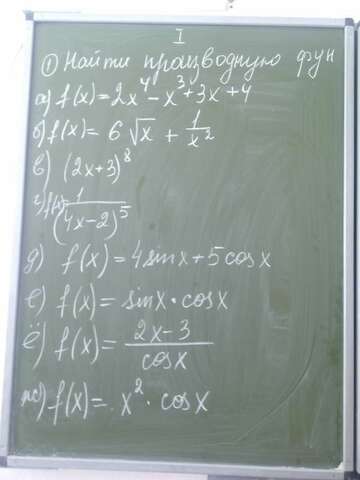 I
① Найти производную фун
а) f(x) = 2x⁴ - x³ + 3x + 4
б) f(x) = 6√x + 1/x²
в) (2x+3)⁸
г) f(x) = 1/(4x-2)⁵
д) f(x) = 4sinx + 5cosx
е) f(x) = sinx · cosx
ё) f(x) = (2x-3)/cosx
ж) f(x) = x² · cosx